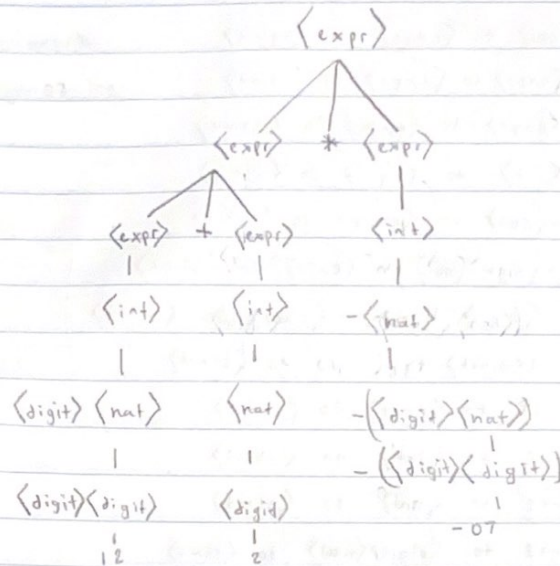 ⟨expr⟩
⟨expr⟩ * ⟨expr⟩
⟨expr⟩ + ⟨expr⟩ ⟨int⟩
⟨int⟩ ⟨int⟩ -⟨nat⟩
⟨digit⟩ ⟨nat⟩ ⟨nat⟩ -(⟨digit⟩⟨nat⟩)
-(⟨digit⟩⟨digit⟩)
⟨digit⟩⟨digit⟩ ⟨digit⟩
-07
12 2